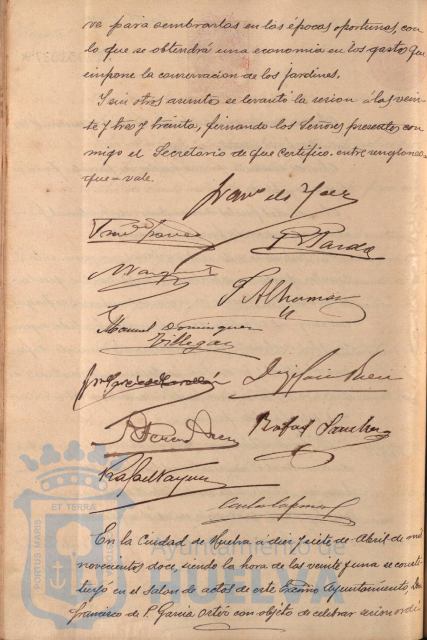 ve para sembrarlas en las épocas oportunas, con
lo que se obtendrá una economia en los gastos que
impone la conservacion de los jardines.
Y sin otros asuntos se levantó la sesion á las vein-
te y tres y treinta, firmando los Señores presentes con
migo el Secretario de que certifico. entre renglones=
que=vale.
R Parda
Marquez
F Alhama
Manuel Dominguez
Villegas
Rafael Sanchez
Rafael Vazquez
En la Ciudad de Huelva a diez y siete de Abril de mil
novecientos doce, siendo la hora de las veinte y una se consti-
tuyó en el salon de actos de este Excmo Ayuntamiento, Don
Francisco de P. Garcia Ortiz con objeto de celebrar sesion ordi
PORTUS MARIS
ET TERRA
Ayuntamiento de
HUELVA